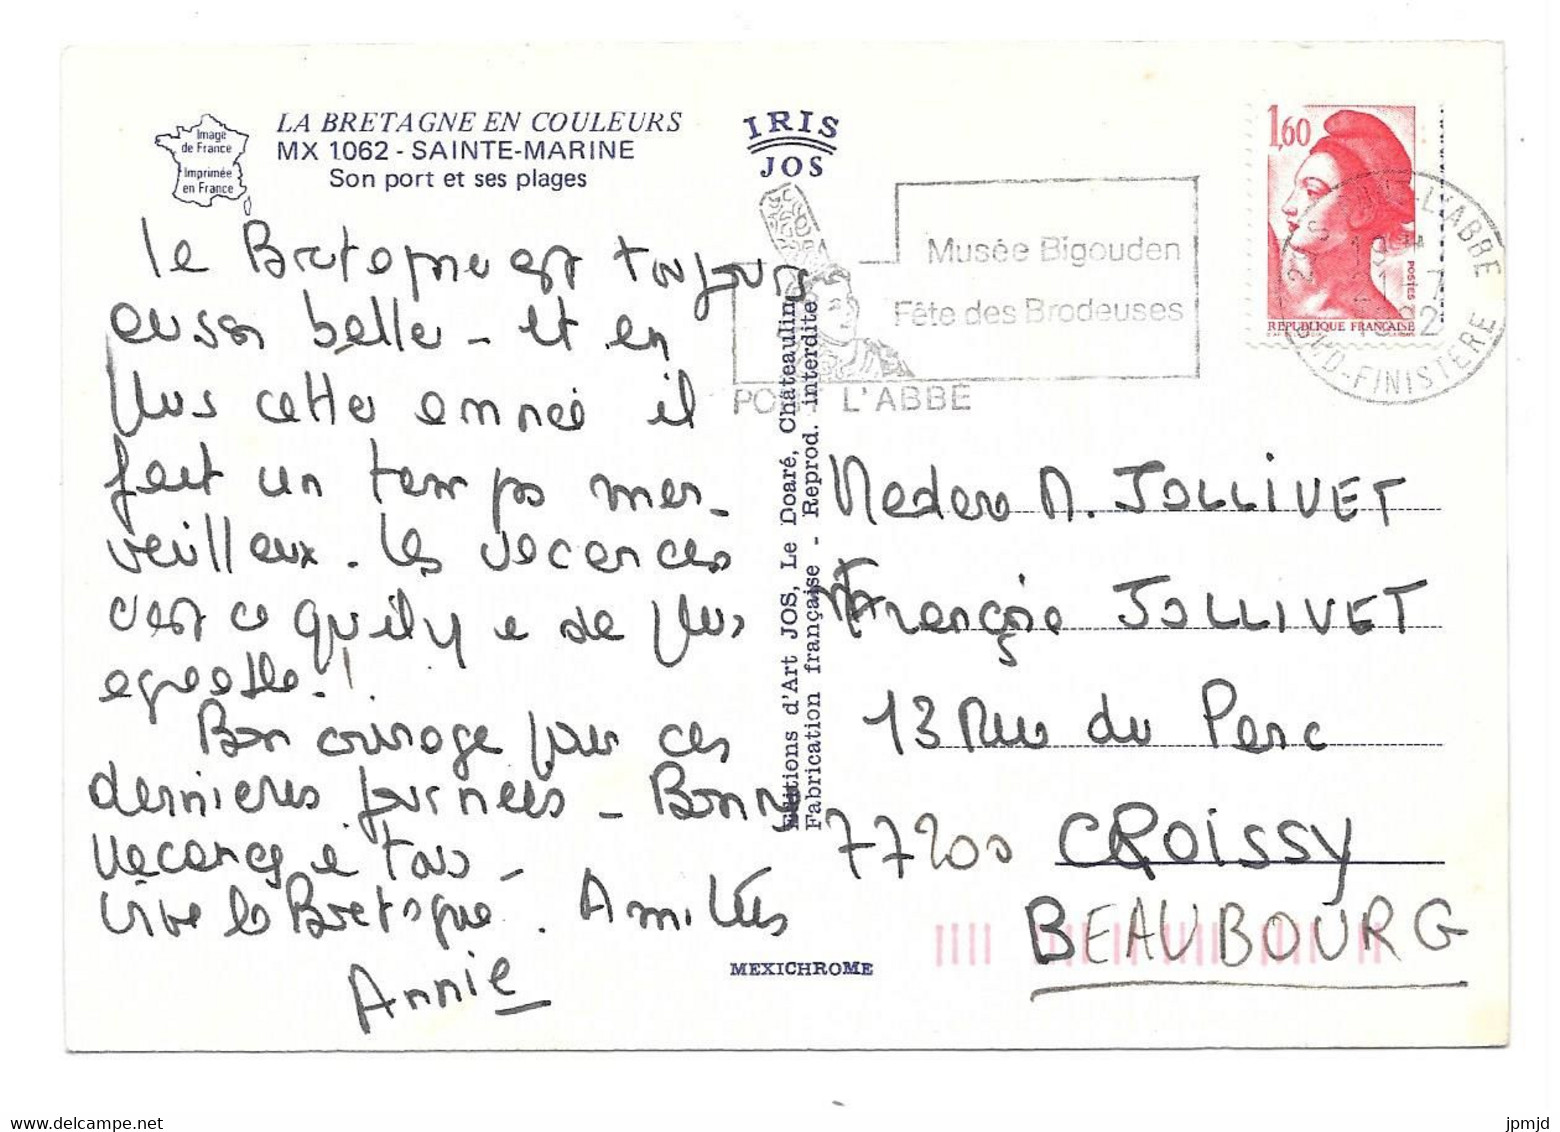 Image
de France
Imprimée
en France
LA BRETAGNE EN COULEURS
MX 1.062 - SAINTE-MARINE
Son port et ses plages
IRIS
JOS
la Bretagne est toujours
aussi belle - Et en
plus cette année il
fait un temps mer-
veilleux. Les vacances
c'est ce qu'il y a de plus
agréable !
Bon courage pour ces
dernières journées - Bonnes
vacances à tous -
Vive la Bretagne. Amitiés
Annie
Editions d'Art JOS, Le Doaré, Châteaulin
Fabrication française - Reprod. interdite
MEXICHROME
Musée Bigouden
Fête des Brodeuses
PONT L'ABBÉ
1,60
POSTES
REPUBLIQUE FRANÇAISE
29 S -L'ABBE
SUD-FINISTERE
Madame M. JOLLIVET
Françoise JOLLIVET
13 Rue du Parc
77200 CROISSY
BEAUBOURG
jpmjd